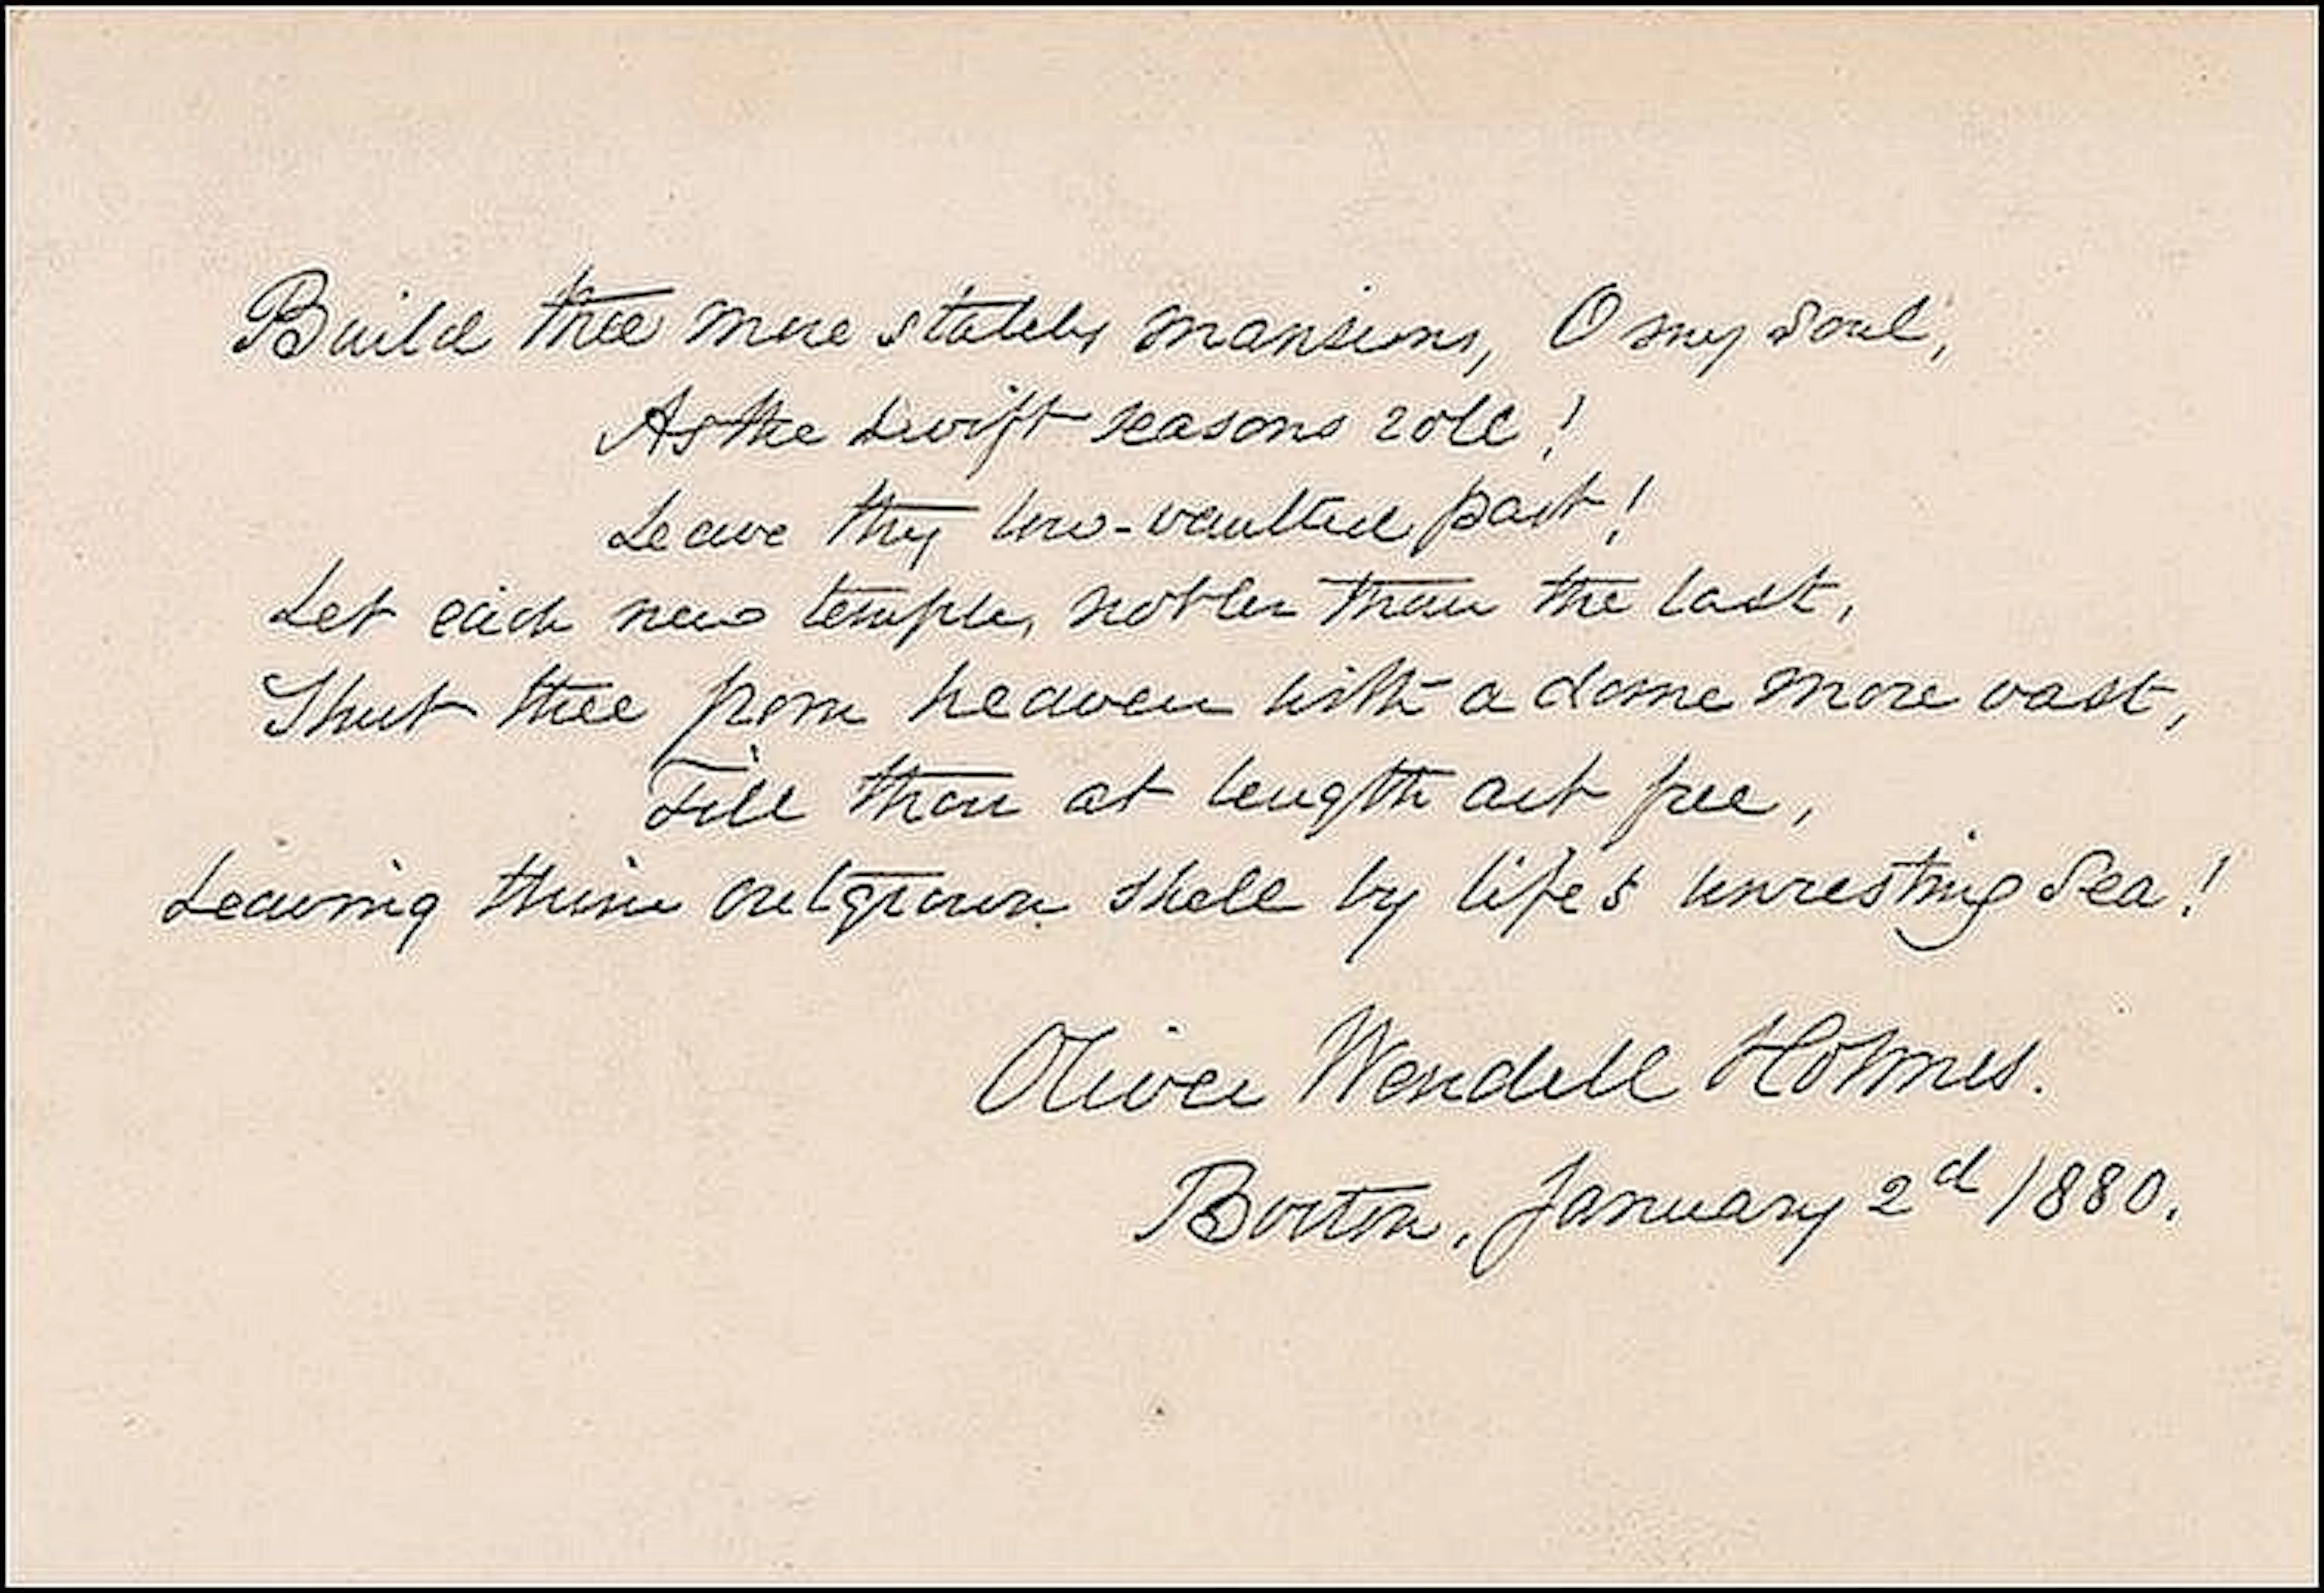 Build thee more stately mansions, O my Soul,
As the swift seasons roll!
Leave thy low-vaulted past!
Let each new temple, nobler than the last,
Shut thee from heaven with a dome more vast,
Till thou at length art free,
Leaving thine outgrown shell by life's unresting Sea!
Oliver Wendell Holmes.
Boston, January 2d 1880.